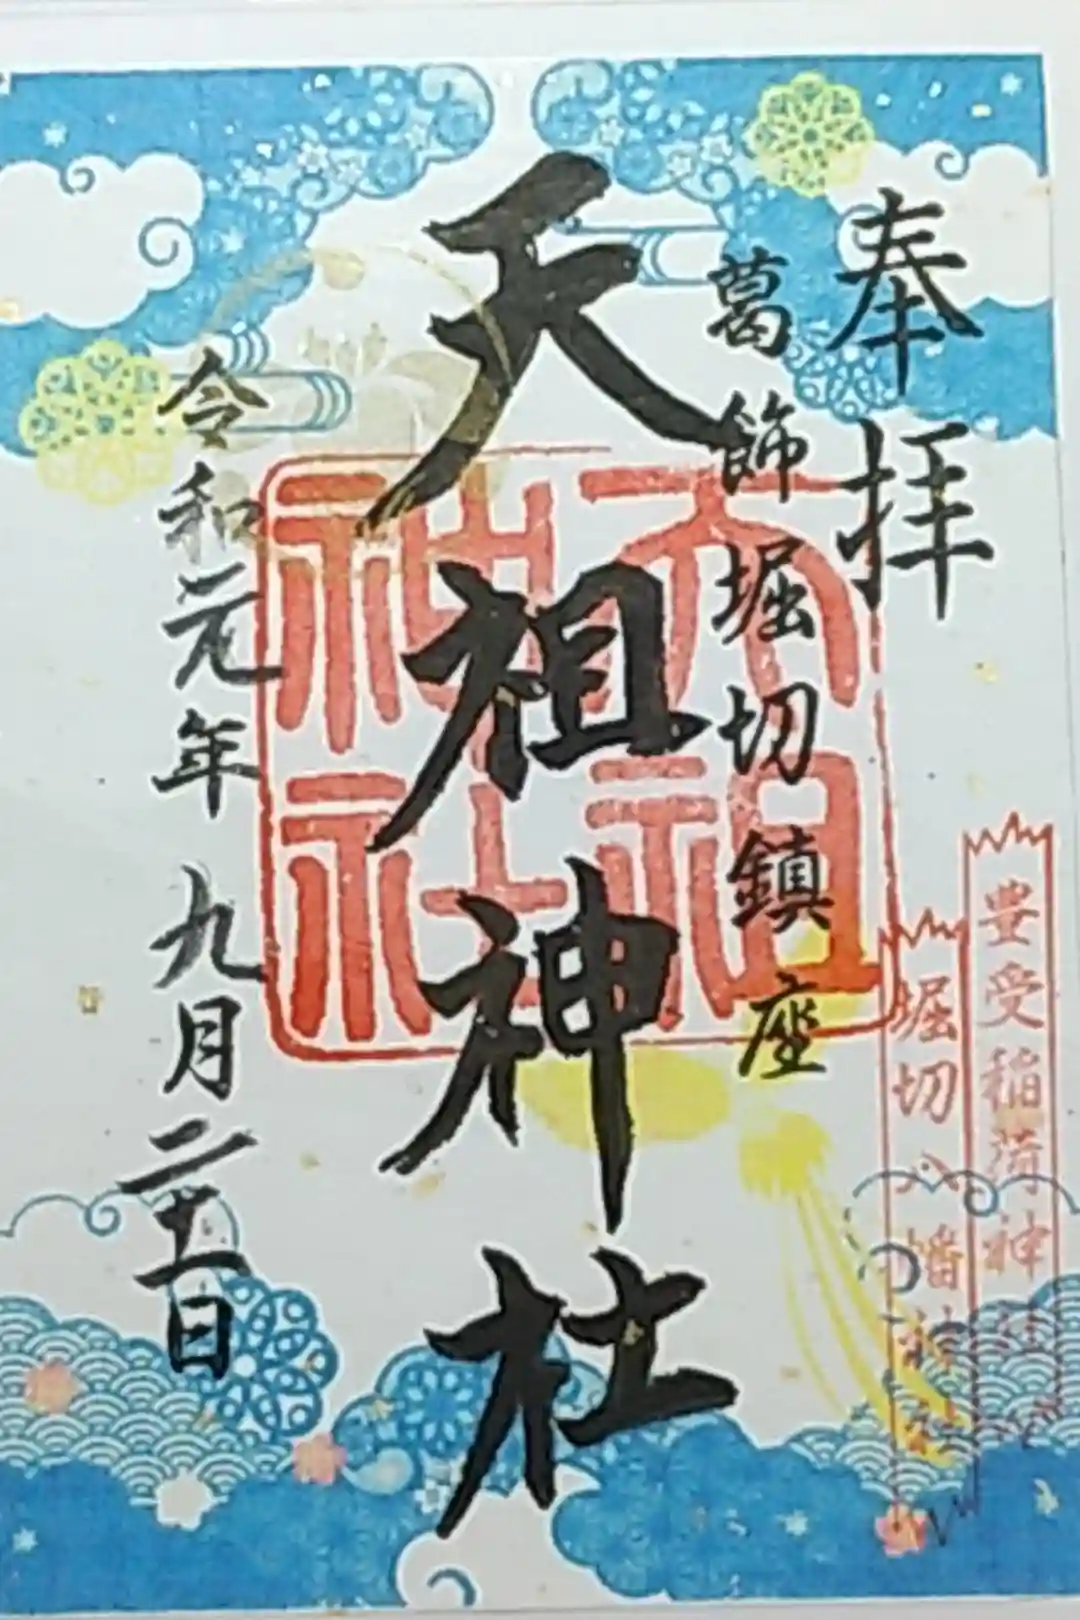 奉拝
葛飾堀切鎮座
天祖神社
天祖
神社
令和元年九月二十一日
豊受稲荷神社
堀切八幡神社